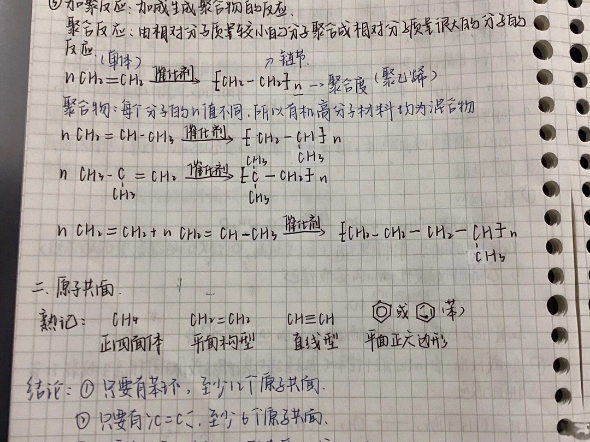 ③加聚反应:加成生成聚合物的反应.
聚合反应:由相对分子质量较小的分子聚合成相对分子质量很大的分子的
反应 (单体) ↗链节
n CH₂=CH₂ 催化剂→ [CH₂-CH₂]n → 聚合度 (聚乙烯)
聚合物:每个分子的n值不同,所以有机高分子材料均为混合物
n CH₂=CH-CH₃ 催化剂→ [CH₂-CH]n
CH₃
CH₃
n CH₃-C=CH₂ 催化剂→ [C-CH₂]n
CH₃ CH₃
n CH₂=CH₂ + n CH₂=CH-CH₃ 催化剂→ [CH₂-CH₂-CH₂-CH]n
CH₃
二.原子共面.
熟记: CH₄ CH₂=CH₂ CH≡CH 或 (苯)
正四面体 平面构型 直线型 平面正六边形
结论:① 只要有苯环,至少12个原子共面.
② 只要有C=C,至少6个原子共面.